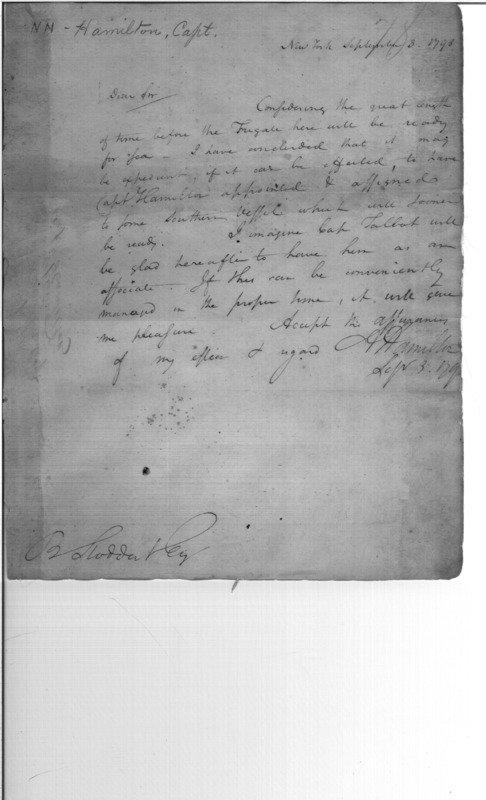 NN - Hamilton, Capt.
New York September 3 1798
Dear Sir
Considering the great length
of time before the Frigate here will be ready
for sea - I have concluded that it may
be expedient if it can be effected, to have
Capt Hamilton appointed & assigned
to some Southern Vessel which will sooner
be ready. I imagine Cap Talbot will
be glad hereafter to have him as an
associate. If this can be conveniently
managed in the proper time, it will give
me pleasure. Accept the assurances
of my esteem & regard A Hamilton
Sept 3. 179
Stoddert Esq